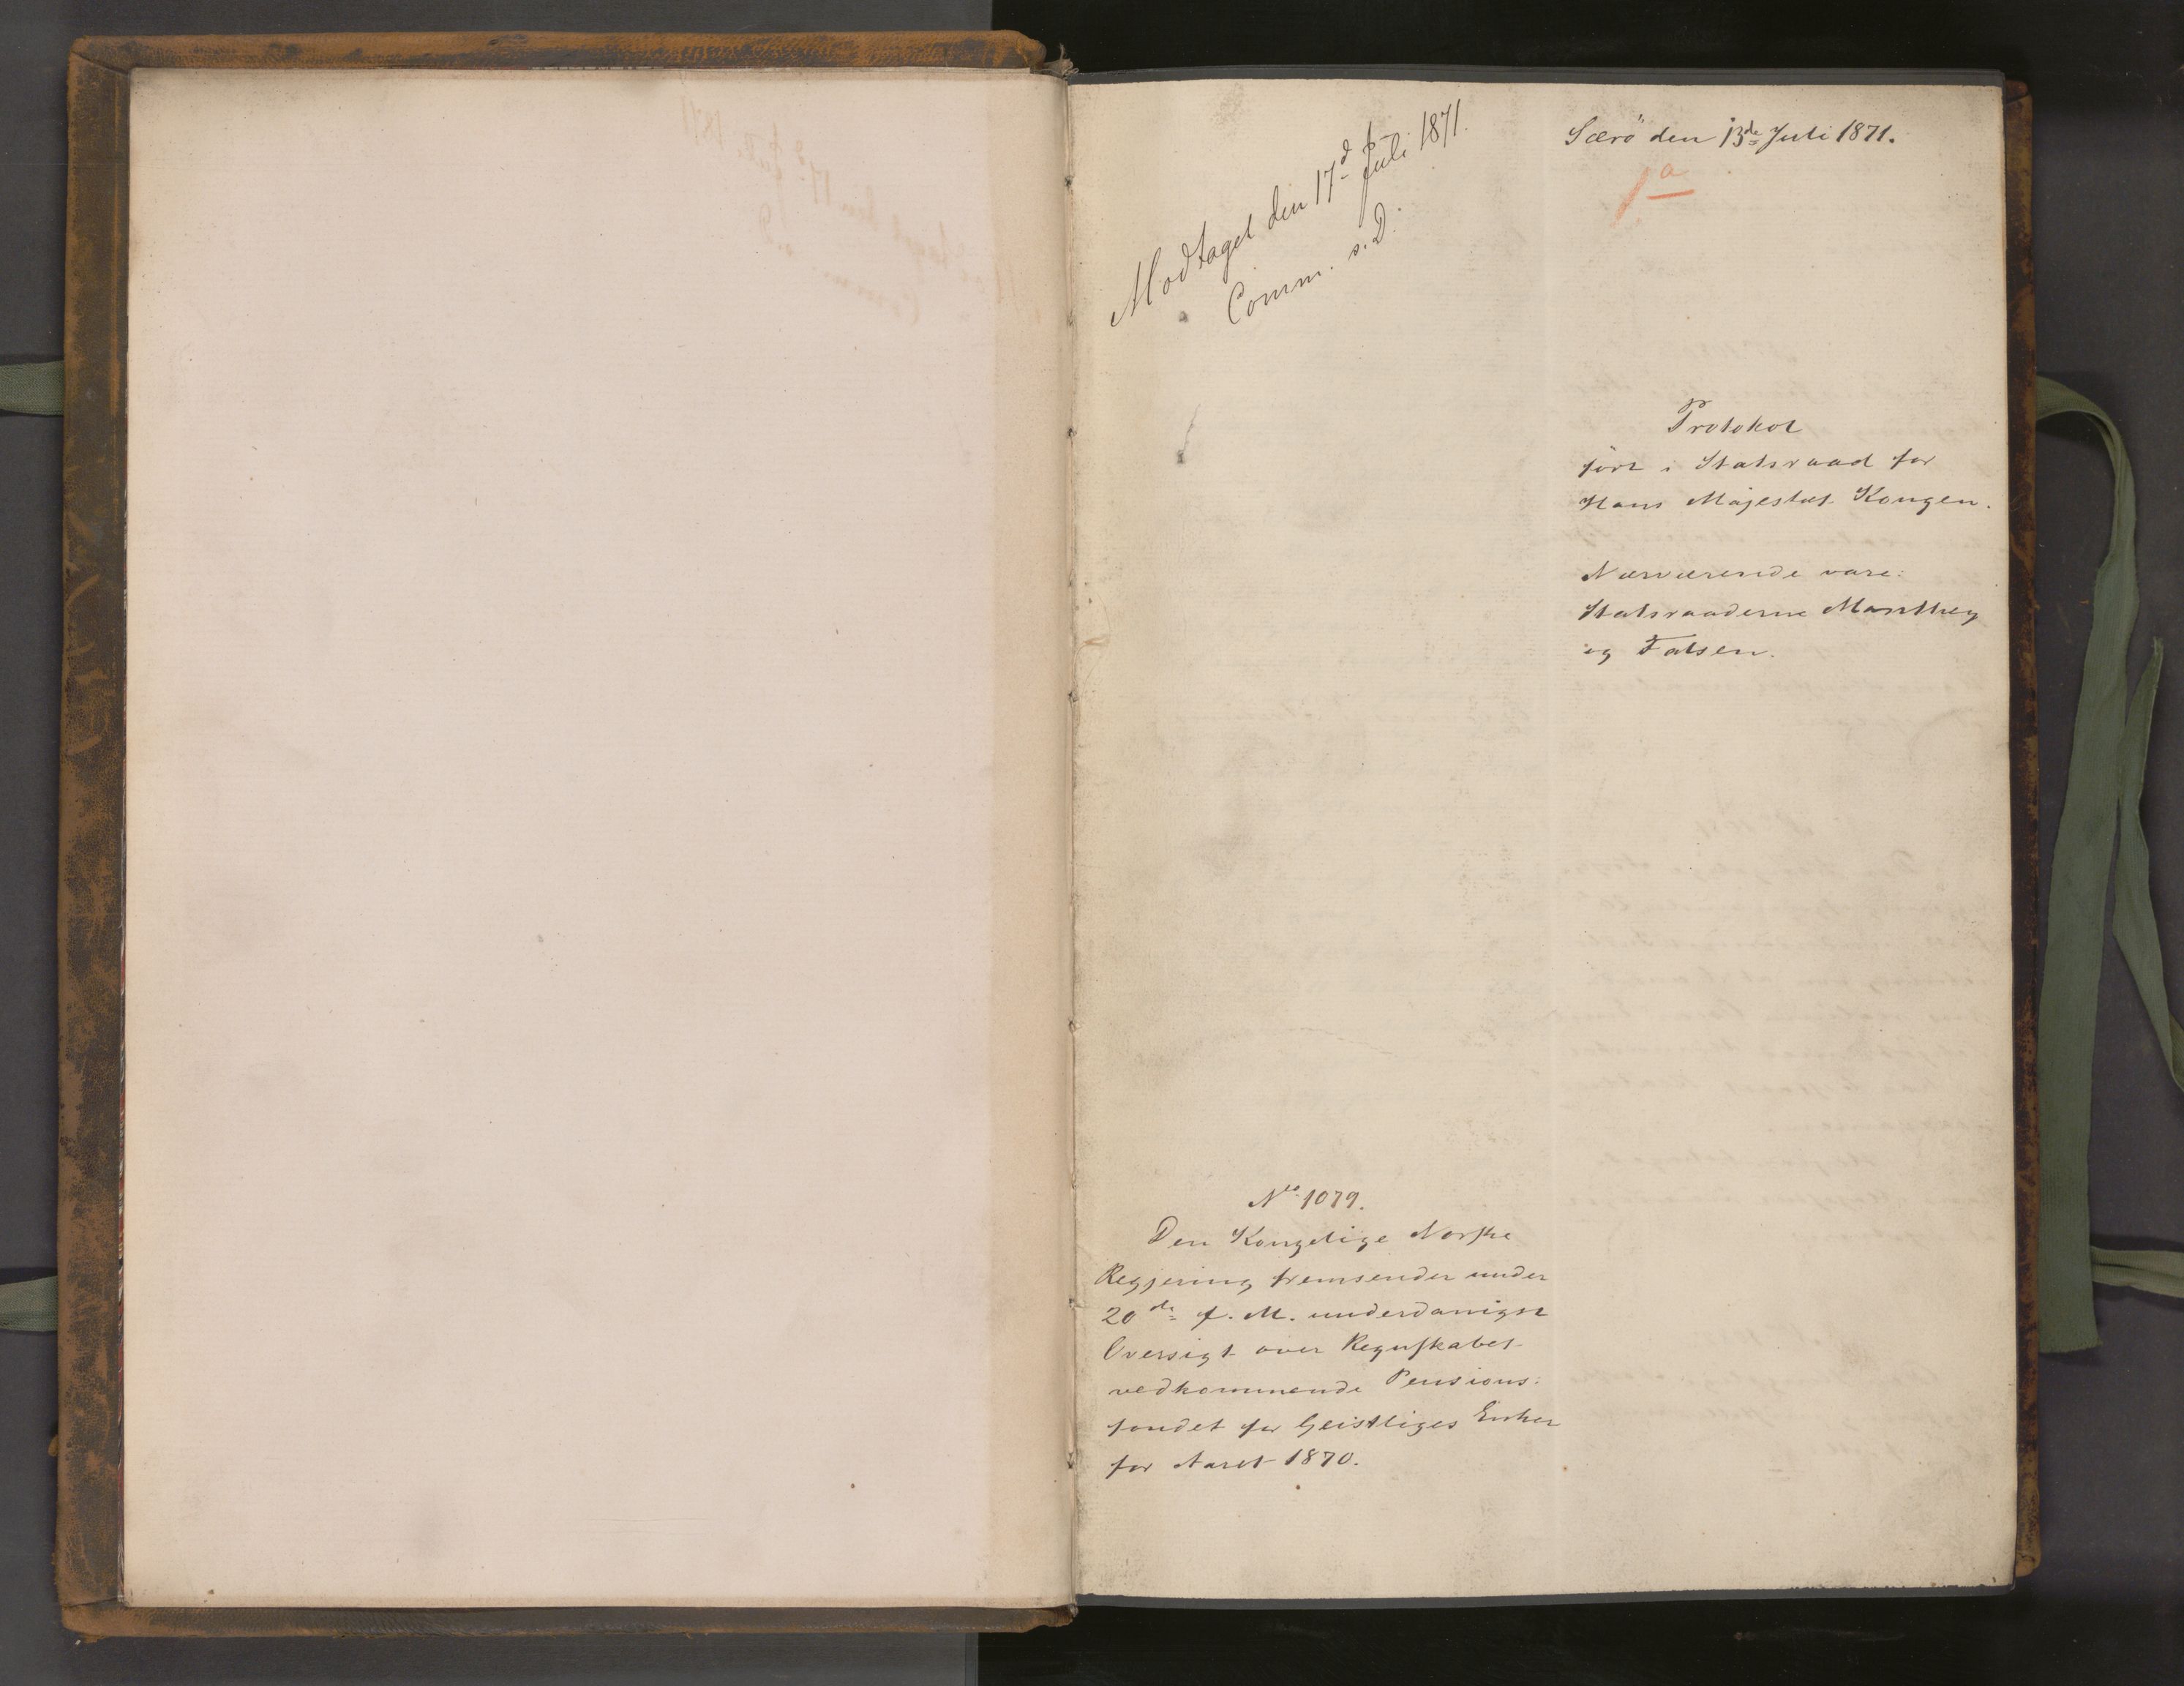 Modtaget den 17d Juli 1871.
Comm. s. D.
Særö den 13de Juli 1871.
1a
Protokol
ført i Statsraad for
Hans Majestæt Kongen.
Nærværende vare:
Statsraaderne Manthey
og Falsen.
No. 1079.
Den Kongelige Norske
Regjering fremsender under
20de f. M. underdanigst
Oversigt over Regnskabet
vedkommende Pensions-
fondet for Geistliges Enker
for Aaret 1870.